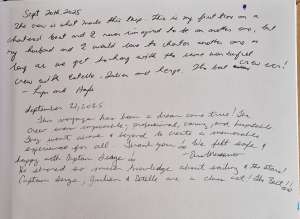 Sept 20th 2025
The crew is what made this trip. This is my first time on a
chartered boat and I never imagined to be on another one, but
my husband and I would love to charter another one as
long as we get to hang with the same wonderful
crew with Estelle, Julian and Serge. The best crew ever!
September 21, 2025
This voyage has been a dream come true! The
crew were enjoyable, professional, caring, and fantastic.
They went above & beyond to create a memorable
experience for all. Thank you! We felt safe &
happy with Captain Serge is
He shared so much knowledge about sailing & the stars!
Captain Serge, Julian & Estelle are a class act! The Best!!